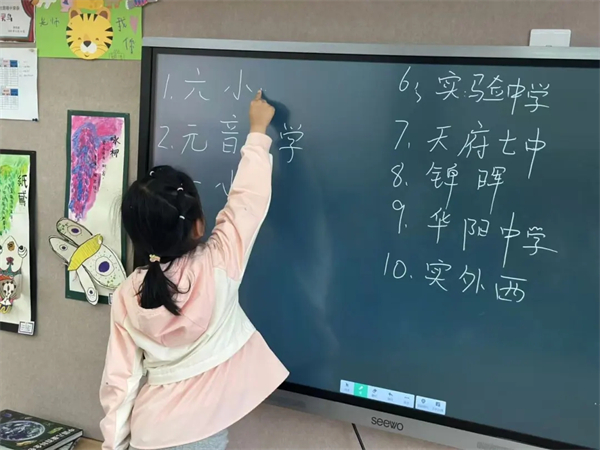 咏柳
纸鸢
1. 六小
2. 元音 学
小
6、实验中学
7. 天府七中
8. 锦晖
9. 华阳中学
10. 实外西
seewo